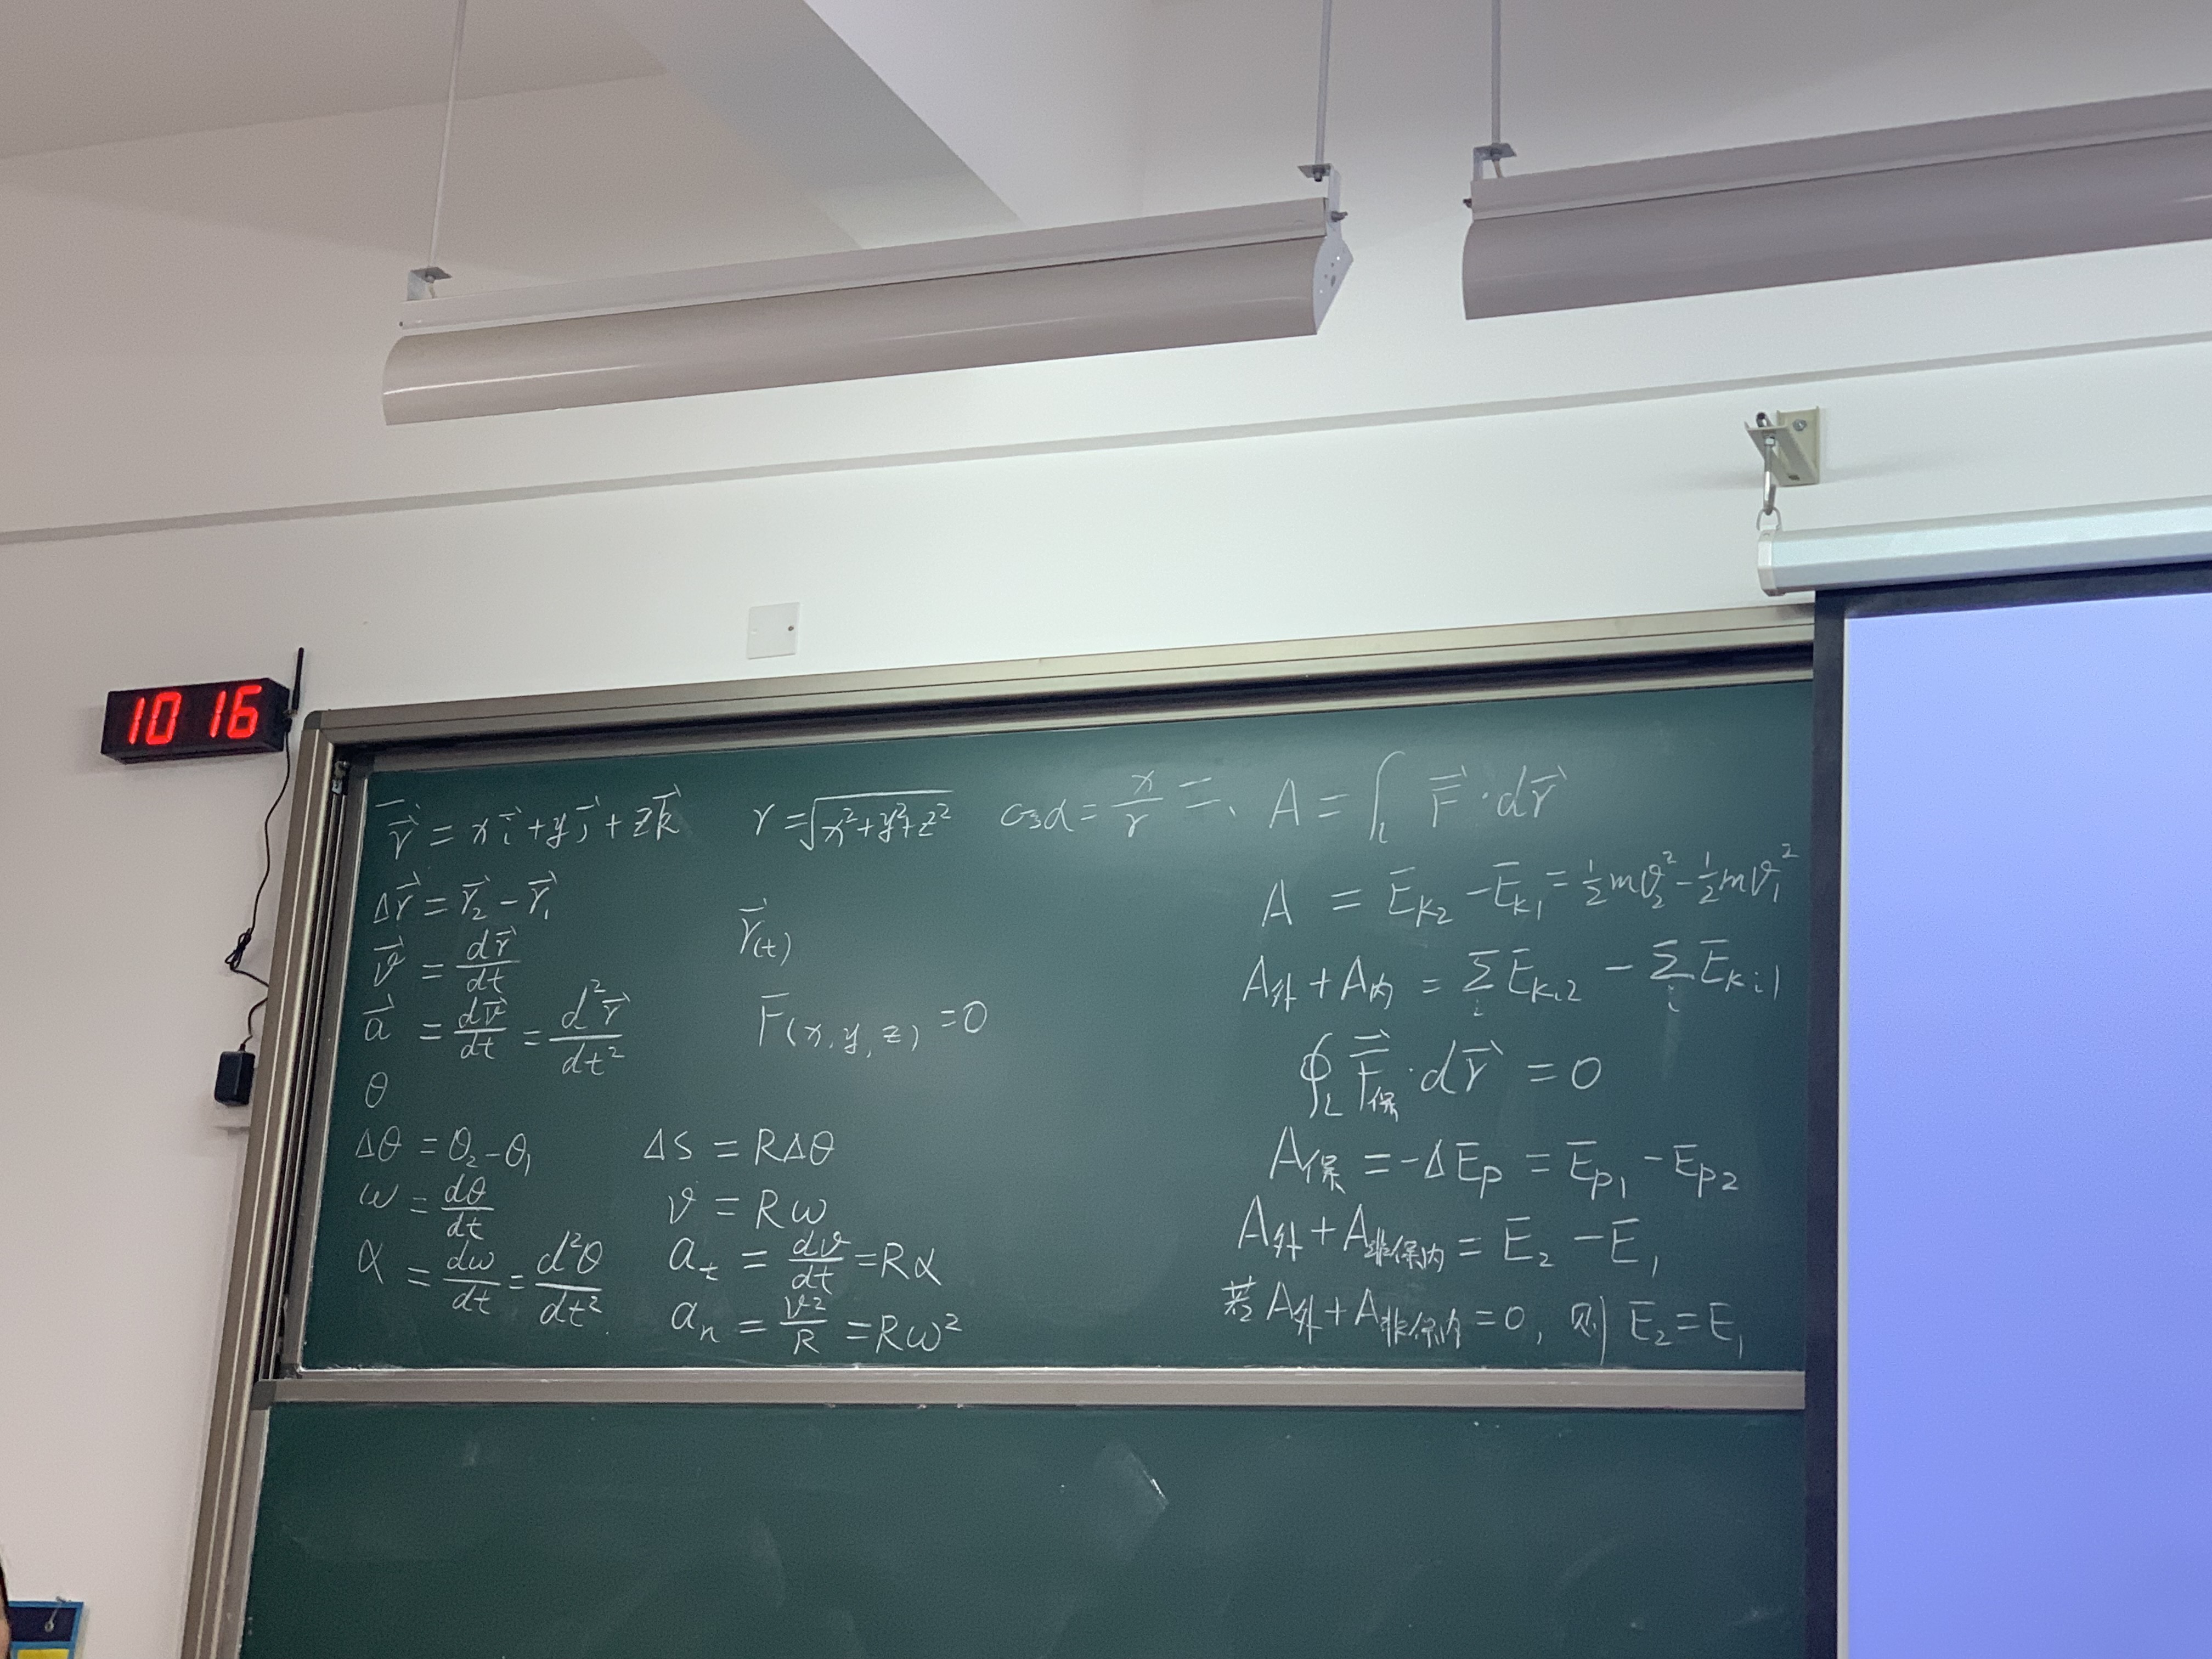 10 16
r⃗ = xi⃗ + yj⃗ + zk⃗
r = √(x²+y²+z²)
cosα = x/r
Δr⃗ = r⃗₂ − r⃗₁
v⃗ = dr⃗/dt
r⃗(t)
a⃗ = dv⃗/dt = d²r⃗/dt²
F(x, y, z) = 0
θ
Δθ = θ₂ − θ₁
ΔS = RΔθ
ω = dθ/dt
v = Rω
α = dω/dt = d²θ/dt²
a_t = dv/dt = Rα
a_n = v²/R = Rω²
二、A = ∫_L F⃗ · dr⃗
A = E_K2 − E_K1 = ½mv₂² − ½mv₁²
A外 + A内 = Σ_i E_Ki2 − Σ_i E_Ki1
∮_L F⃗保 · dr⃗ = 0
A保 = −ΔE_P = E_P1 − E_P2
A外 + A非保内 = E₂ − E₁
若 A外 + A非保内 = 0, 则 E₂ = E₁